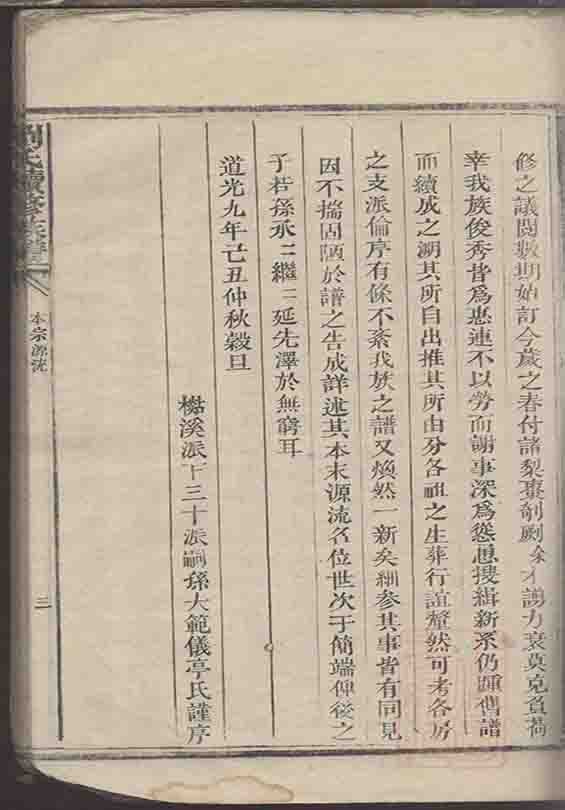 修之議閱數期始訂今歲之春付諸梨棗剞劂余才謭力衰莫克負荷
幸我族俊秀皆爲惠連不以勞而謝事深爲慫恿搜緝新系仍踵舊譜
而續成之溯其所自出推其所由分各祖之生葬行誼釐然可考各房
之支派倫序有條不紊我族之譜又煥然一新矣細參其事皆有同見
因不揣固陋於譜之告成詳述其本末源流名位世次于簡端俾後之
子若孫承二繼二延先澤於無窮耳
道光九年己丑仲秋穀旦
樾溪派下三十派嗣孫大範儀亭氏謹序
劉氏續修族譜
本宗源流
三